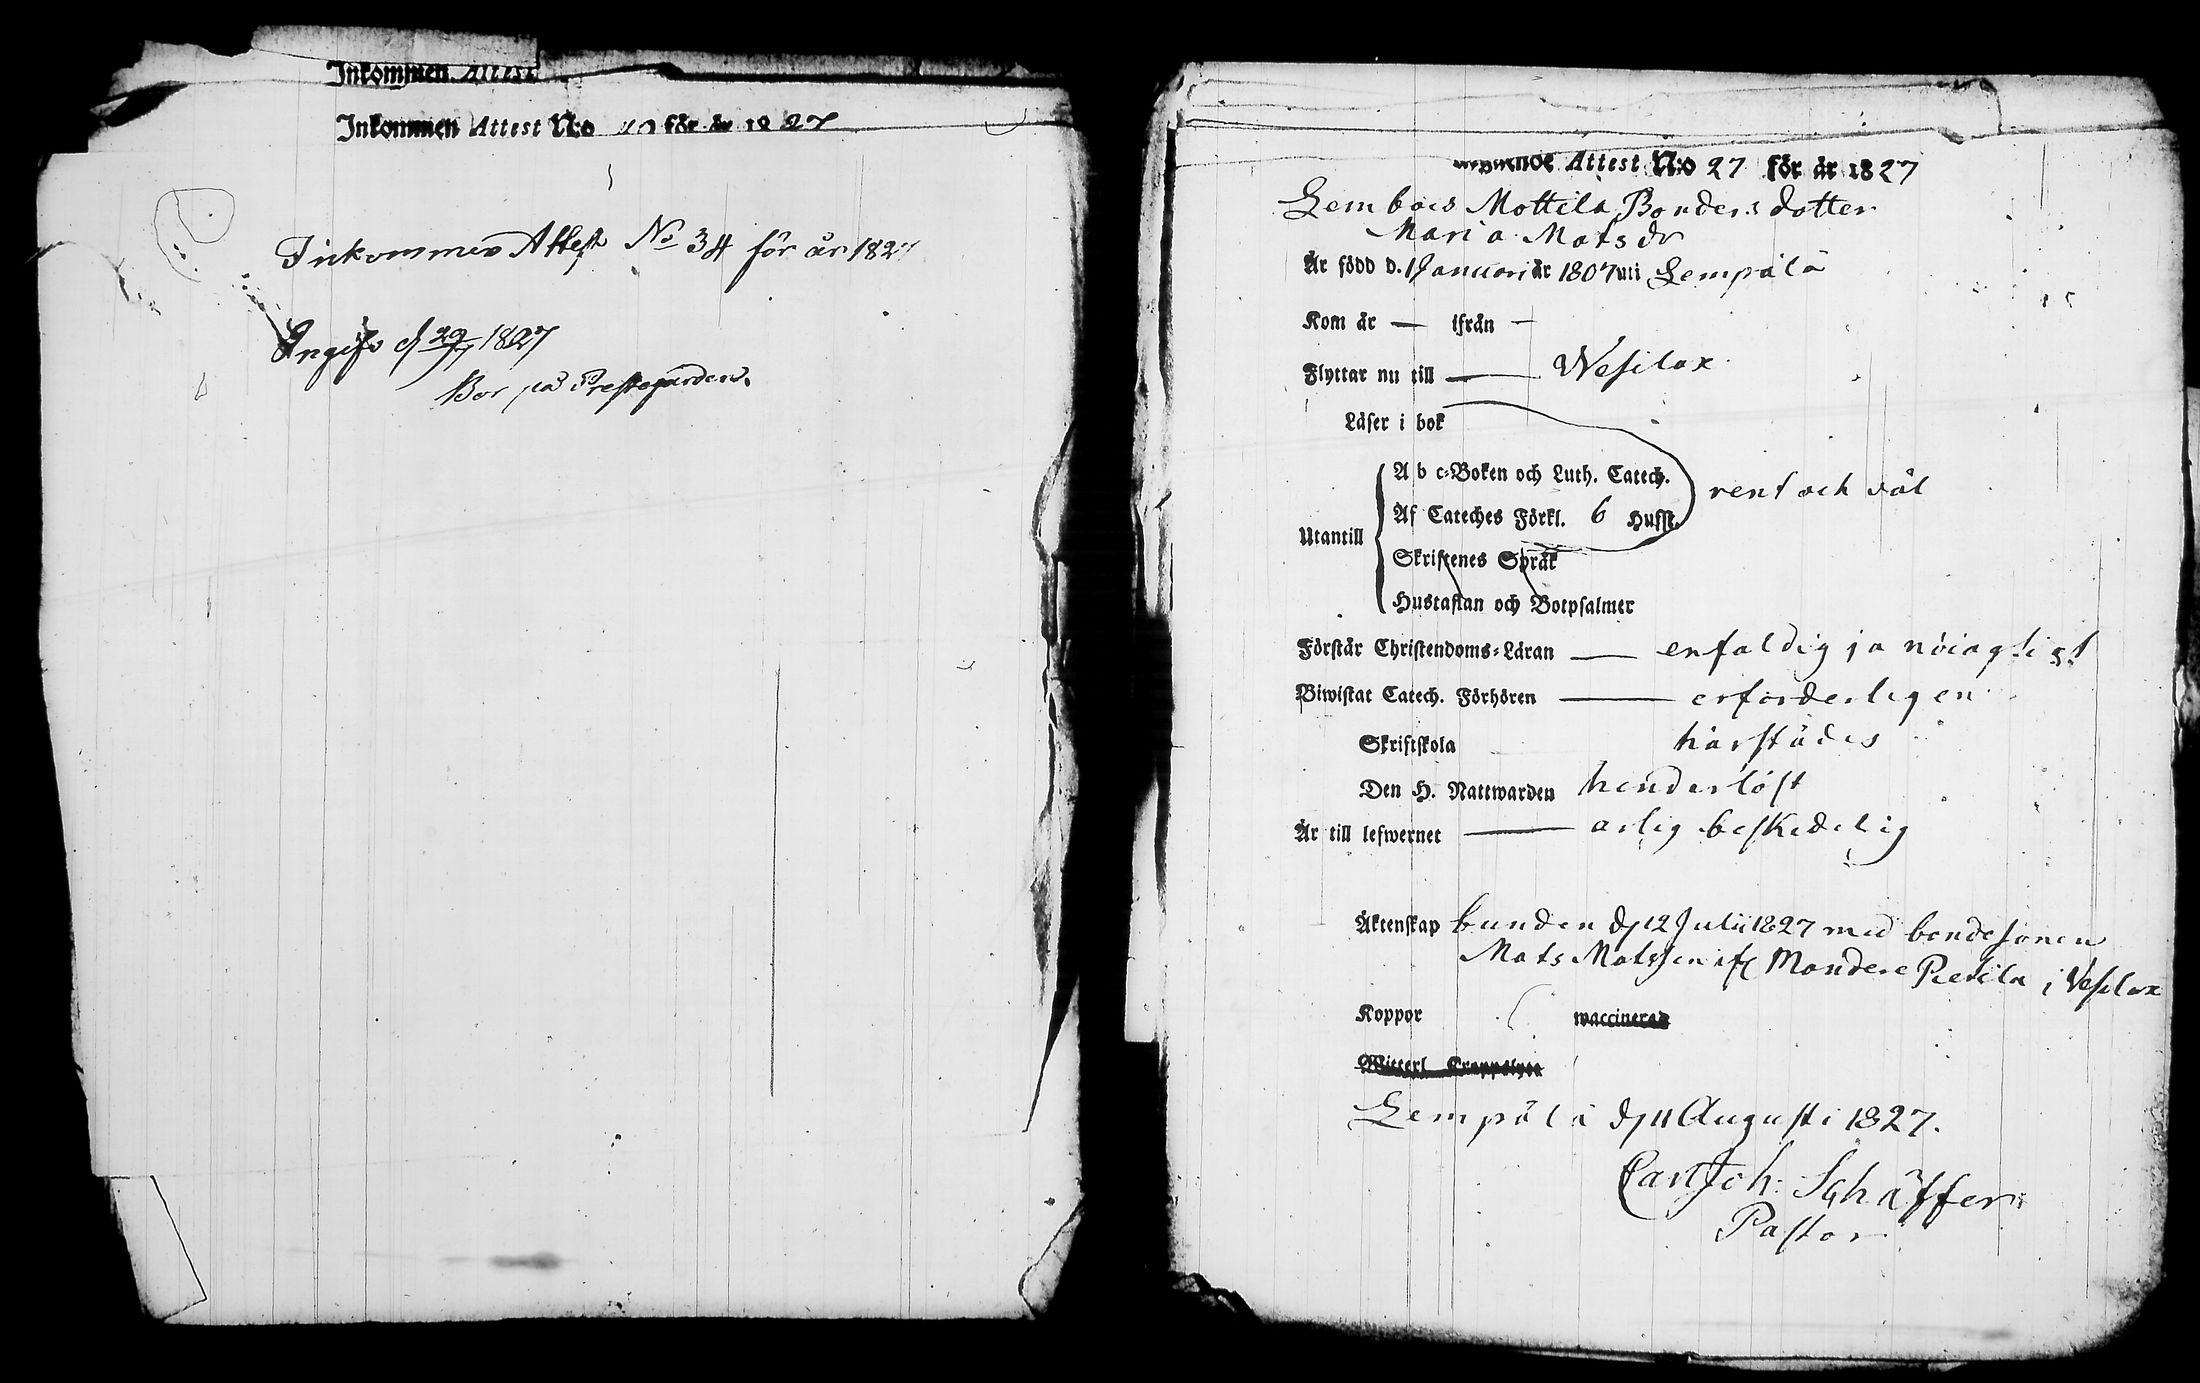 Inkommen Attest
Inkommen Attest N:o för år 1827
Inkommen Attest No 34 för år 1827
Angifv d 29/7 1827
Bor på Prestegården.
Attest N:o 27 för år 1827
Lembois Mottila Bonders dotter
Maria Matsdr
Är född d. 1 Januari år 1807 uti Lempälä
Kom år — ifrån —
Flyttar nu till — Wesilax
Läser i bok
A b c-Boken och Luth. Catech.
rent och väl
Af Cateches Förkl. 6 Hufst.
Utantill
Skriftenes Språk
Hustaflan och Botpsalmer
Förstår Christendoms-Läran — enfaldig ja nöiagtigt
Biwistat Catech. Förhören — erforderligen
Skriftskola härstädes
Den H. Nattwarden hinderlöst
Är till lefwernet — ärlig beskedelig
Äktenskap bunden d 12 Julii 1827 med bondesonen
Mats Matsson ifr Mandere i Vesilax
Koppor waccinerad
Lempälä d 11 Augusti 1827.
Carl Joh: Schäffer
Pastor